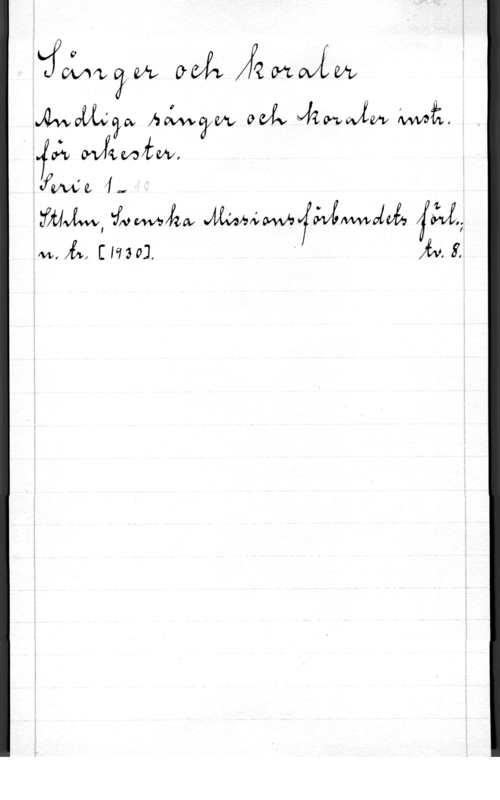 Sånger och koraler
Andliga sånger och koraler instr.
för orkester.
Serie 1_10
Sthlm, Svenska Missionsförbundets förl.,
u. å. [1930]. tv. 8.